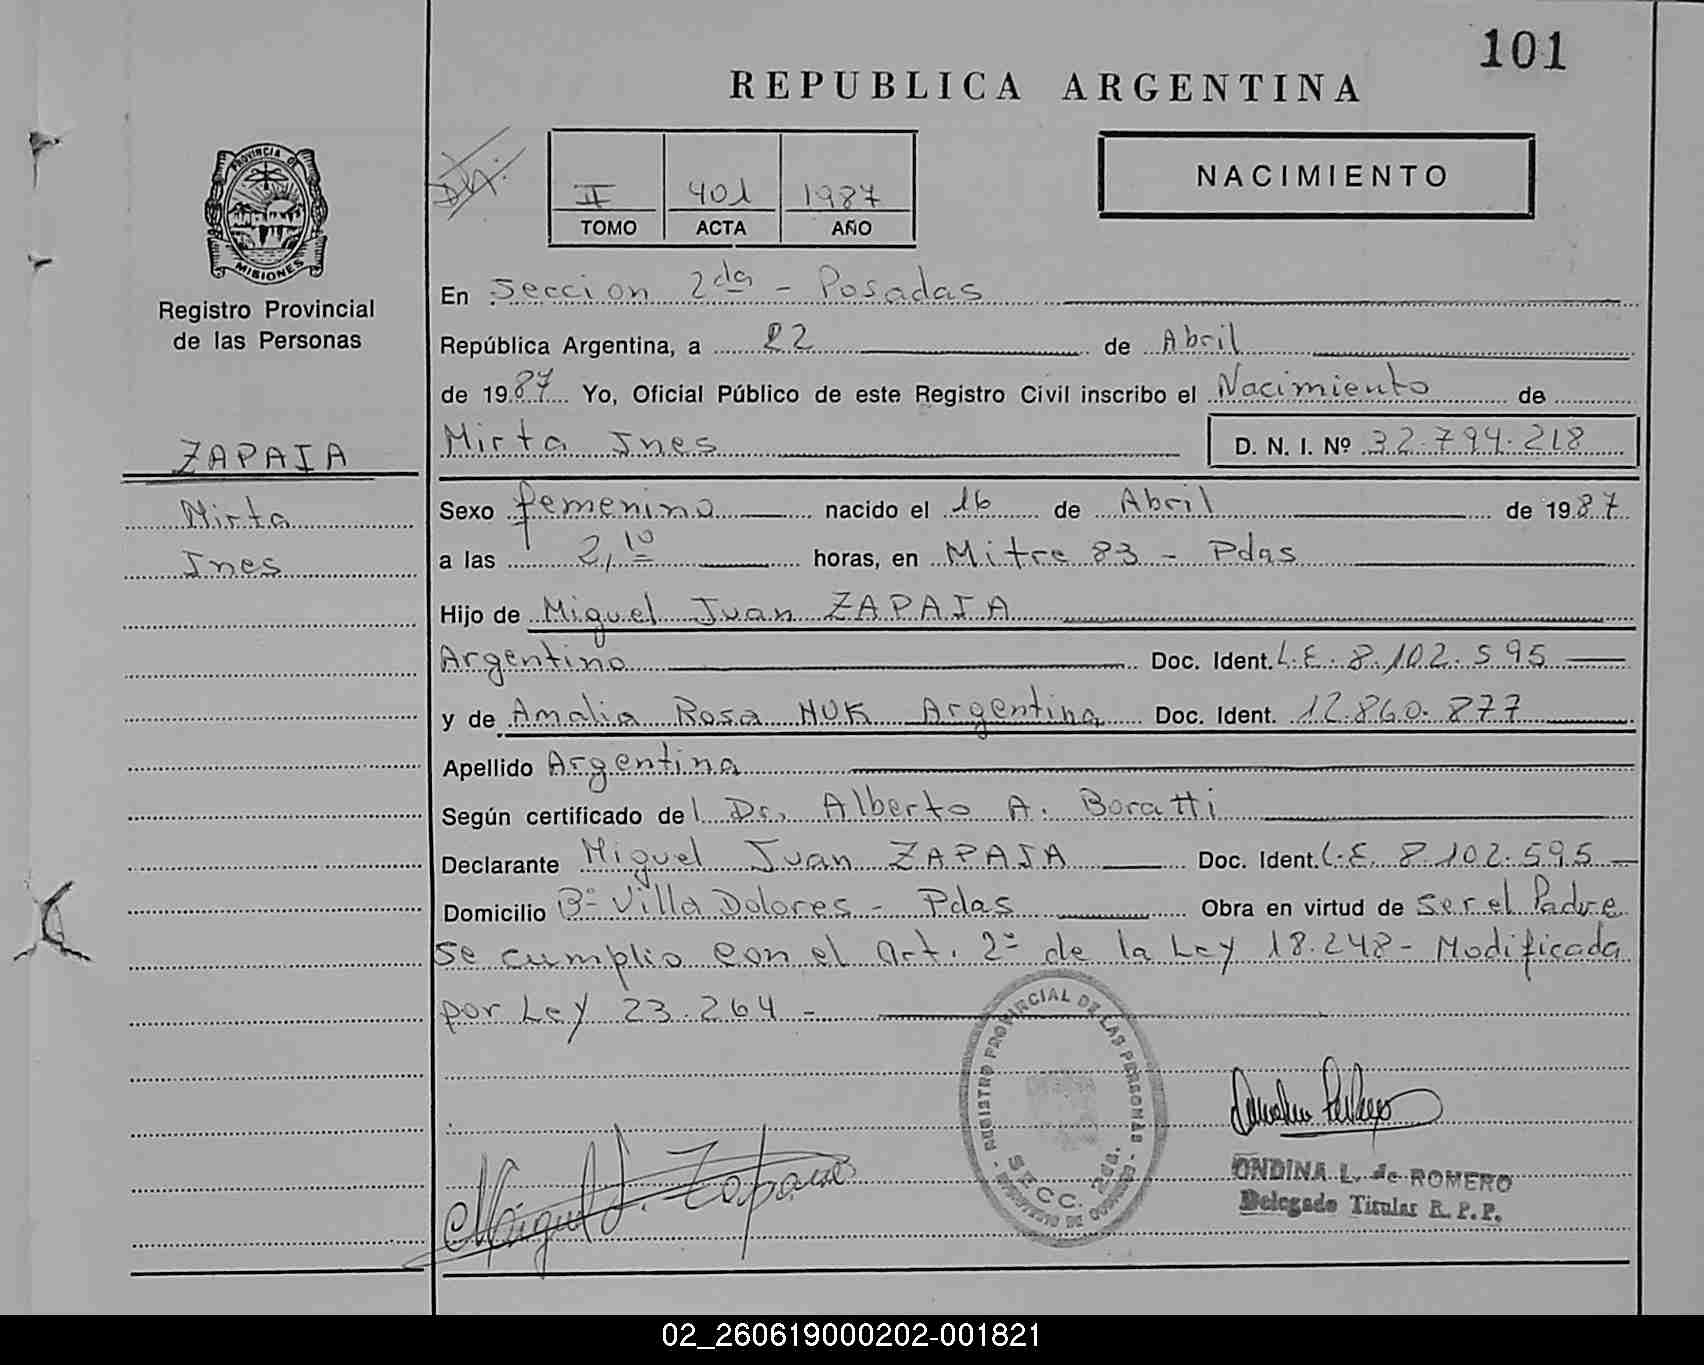 101
REPUBLICA ARGENTINA
NACIMIENTO
II 401 1987
TOMO ACTA AÑO
PROVINCIA DE
MISIONES
Registro Provincial
de las Personas
ZAPAIA
Mirta
Ines
En Seccion 2da - Posadas
República Argentina, a 22 de Abril
de 1987 Yo, Oficial Público de este Registro Civil inscribo el Nacimiento de
Mirta Ines D. N. I. Nº 32.794.218
Sexo femenino nacido el 16 de Abril de 1987
a las 2,10 horas, en Mitre 83 - Pdas
Hijo de Miguel Juan ZAPAIA
Argentino Doc. Ident. L.E. 8.102.595
y de Amalia Rosa HUK Argentina Doc. Ident. 12.860.877
Apellido Argentina
Según certificado del Dr. Alberto A. Boratti
Declarante Miguel Juan ZAPAIA Doc. Ident. L.E. 8.102.595
Domicilio Bº Villa Dolores - Pdas Obra en virtud de ser el Padre
Se cumplio con el art. 2º de la Ley 18.248 - Modificada
por Ley 23.264 -
REGISTRO PROVINCIAL DE LAS PERSONAS
SECC. 2da.
Miguel J.
ONDINA L. de ROMERO
Delegado Titular R. P. P.
02_260619000202-001821